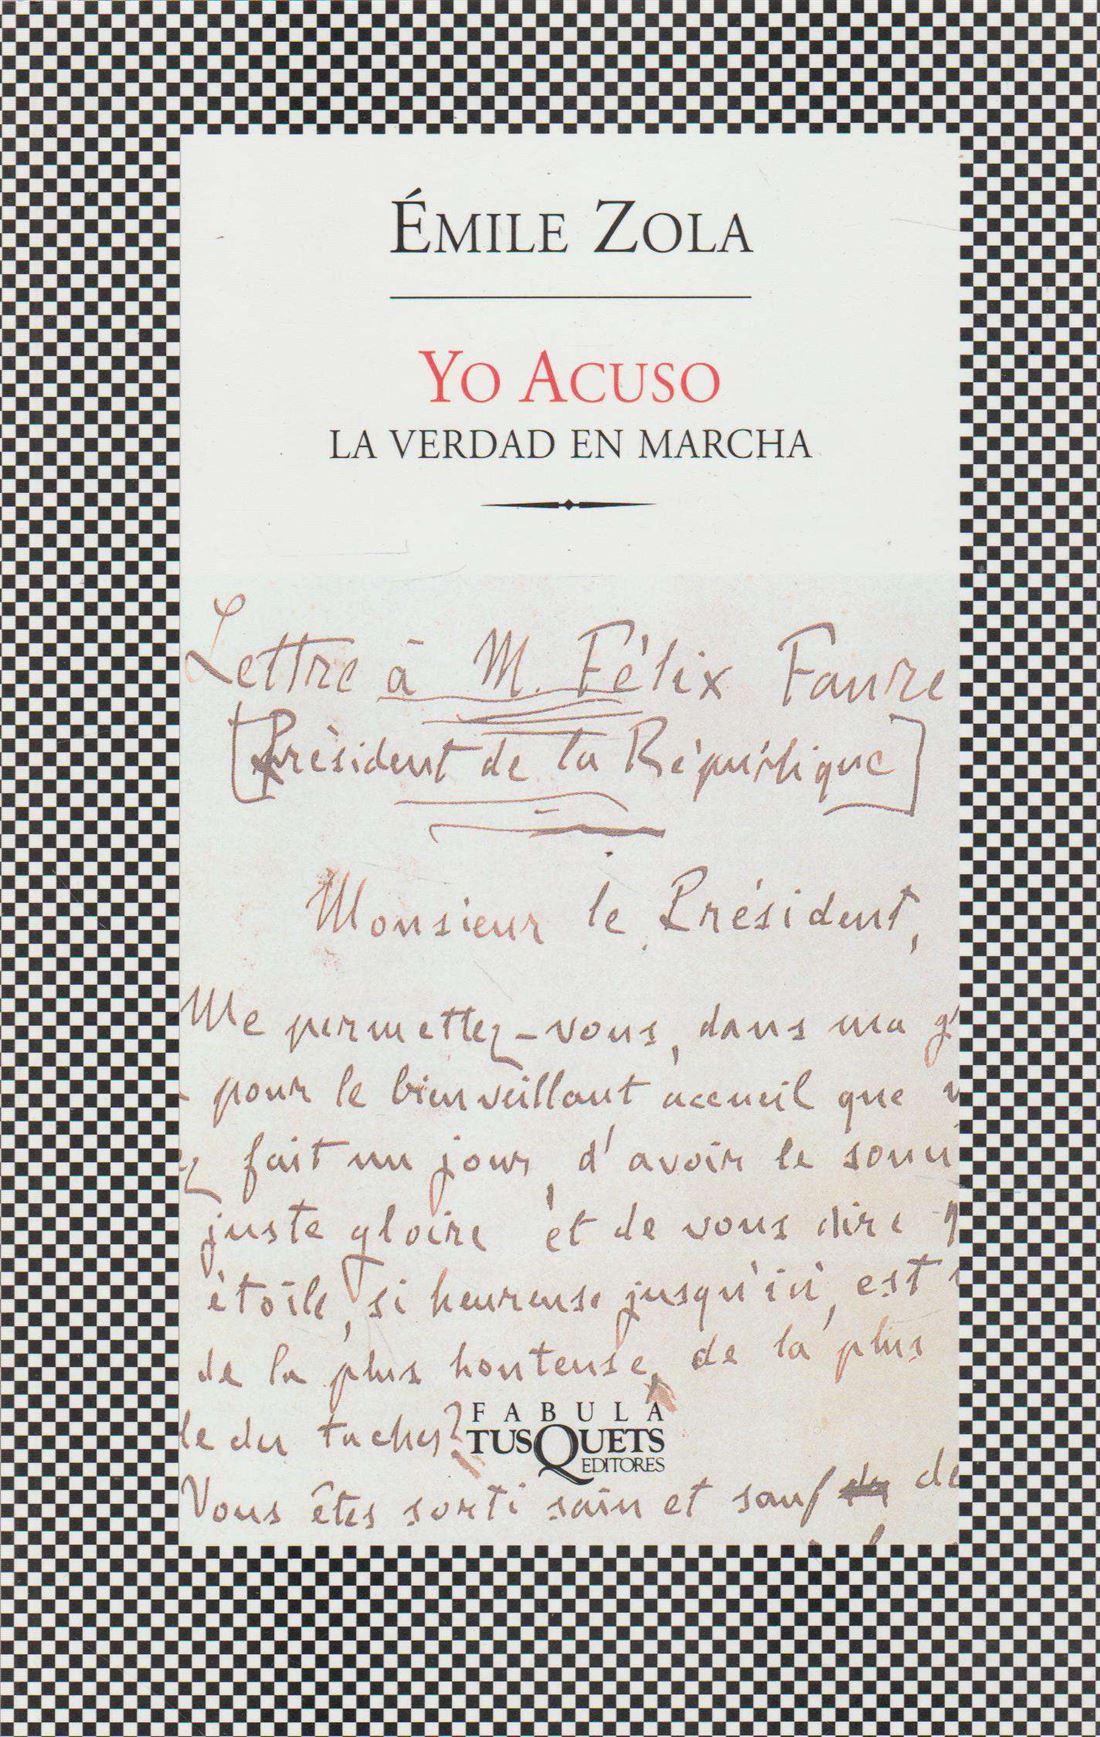 ÉMILE ZOLA
YO ACUSO
LA VERDAD EN MARCHA
Lettre à M. Félix Faure
[Président de la République]
Monsieur le Président,
Me permettez-vous, dans ma g
pour le bienveillant accueil que
z fait un jour, d'avoir le souci
juste gloire et de vous dire q
étoile, si heureuse jusqu'ici, est
de la plus honteuse, de la plus
le des taches?
FABULA
TUSQUETS
EDITORES
Vous êtes sorti sain et sauf de